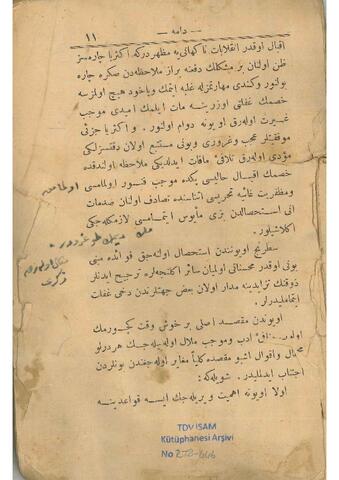 — دامه —
١١
اقبال اوقدر انقلابات ناکهانی به مظهر در که اکثریا چاره سز
ظن اولنان بر مشکلك دفعنه براز ملاحظه دن صکره چاره
بولنور وکندی مهارتمزله غلبه ایتمك ویاخود هیچ اولمزسه
خصمك غفلتی اوزرینه مات ایلمك امیدی موجب
غیرت اوله رق اویونه دوام اولنور. واکثریا جزئی
موفقیتلر عجب وغروری وبونی مستتبع اولان دقتسزلکی
مؤدی اوله رق تلافئ مافات ایدلدیکی ملاحظه اولندقده
خصمك اقبال حالیسی بکده موجب فتور اولمامسی
ومظفریت غائیه تحریسی اثناسنده تصادف اولنان صدمات
انی استحصالدن بزی مأیوس ایتمامسی لازمکله جکی
اکلاشیلور.
سطرنج اویونندن استحصال اولنه جق فوائد مبنی
بونی اوقدر محسناتی اولیان سائر اکلنجه لره ترجیح ایدنلر
ذوقنك تزایدینه مدار اولان بعض جهتلرندن دخی غفلت
ایتمامليدرلر.
اویوندن مقصد اصلی بر خوش وقت کچورمك
ادب وموجب ملال اوله بیله جك هر درلو
واقوال اشبو مقصده کلیاً مغایر اوله جغندن بونلردن
اجتناب ایدلمليدر. شویله که:
اولا اویونه اهمیت ویریله جك ایسه قواعدینه
TDV İSAM
Kütüphanesi Arşivi
No